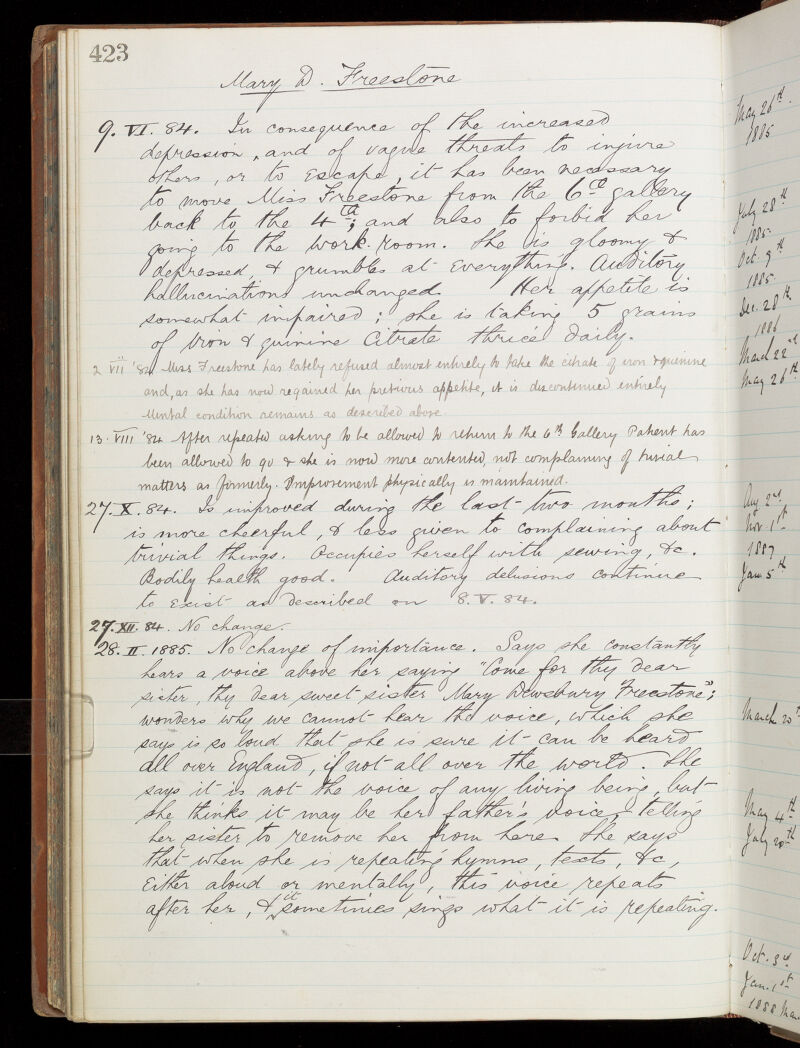 423
Mary D. Freestone
9. VI. 84. In consequence of the increased
depression, and of vague threats to injure
others, or to escape, it has been necessary
to move Miss Freestone from the 6th gallery
back to the 4th; and also to forbid her
going to the work-room. She is gloomy &
depressed, & grumbles at everything. Auditory
hallucinations unchanged. Her appetite is
somewhat impaired; she is taking 5 grains
of Iron & quinine Citrate thrice daily.
2 VII '84 Miss Freestone has lately refused almost entirely to take the citrate of iron & quinine
and, as she has now regained her previous appetite, it is discontinued entirely
Mental condition remains as described above.
13. VIII '84 After repeated asking to be allowed to return to the 6th Gallery Patient has
been allowed to go & she is now more contented, not complaining of trivial
matters as formerly. Improvement physically is maintained.
27. X. 84. Is improved during the last two months;
is more cheerful, & less given to complaining about
trivial things. Occupies herself with sewing, &c.
Bodily health good. Auditory delusions continue
to exist as described on 8. V. 84.
27. XII. 84. No change.
28. II. 1885. No change of importance. Says she constantly
hears a voice above her saying "Come for thy dear
sister, thy dear sweet sister Mary Dewsbury Freestone";
wonders why we cannot hear the voice, which she
says is so loud that she is sure it can be heard
all over England, if not all over the world. She
says it is not the voice of any living being, but
she thinks it may be her father's voice, telling
her sister to remove her from here. She says
that when she is repeating hymns, texts, &c,
either aloud or mentally, this voice repeats
after her, & it sometimes sings what it is repeating.
May 26th
1885
July 28th
1885
Oct. 9th
1885
Dec. 28th
1886
March 22nd
May 26th
Aug 2nd
Nov 1st
1887
Jan 5th
March 20th
May 4th
July 20th
Oct. 3rd
Jan. 1st
1888 Mar